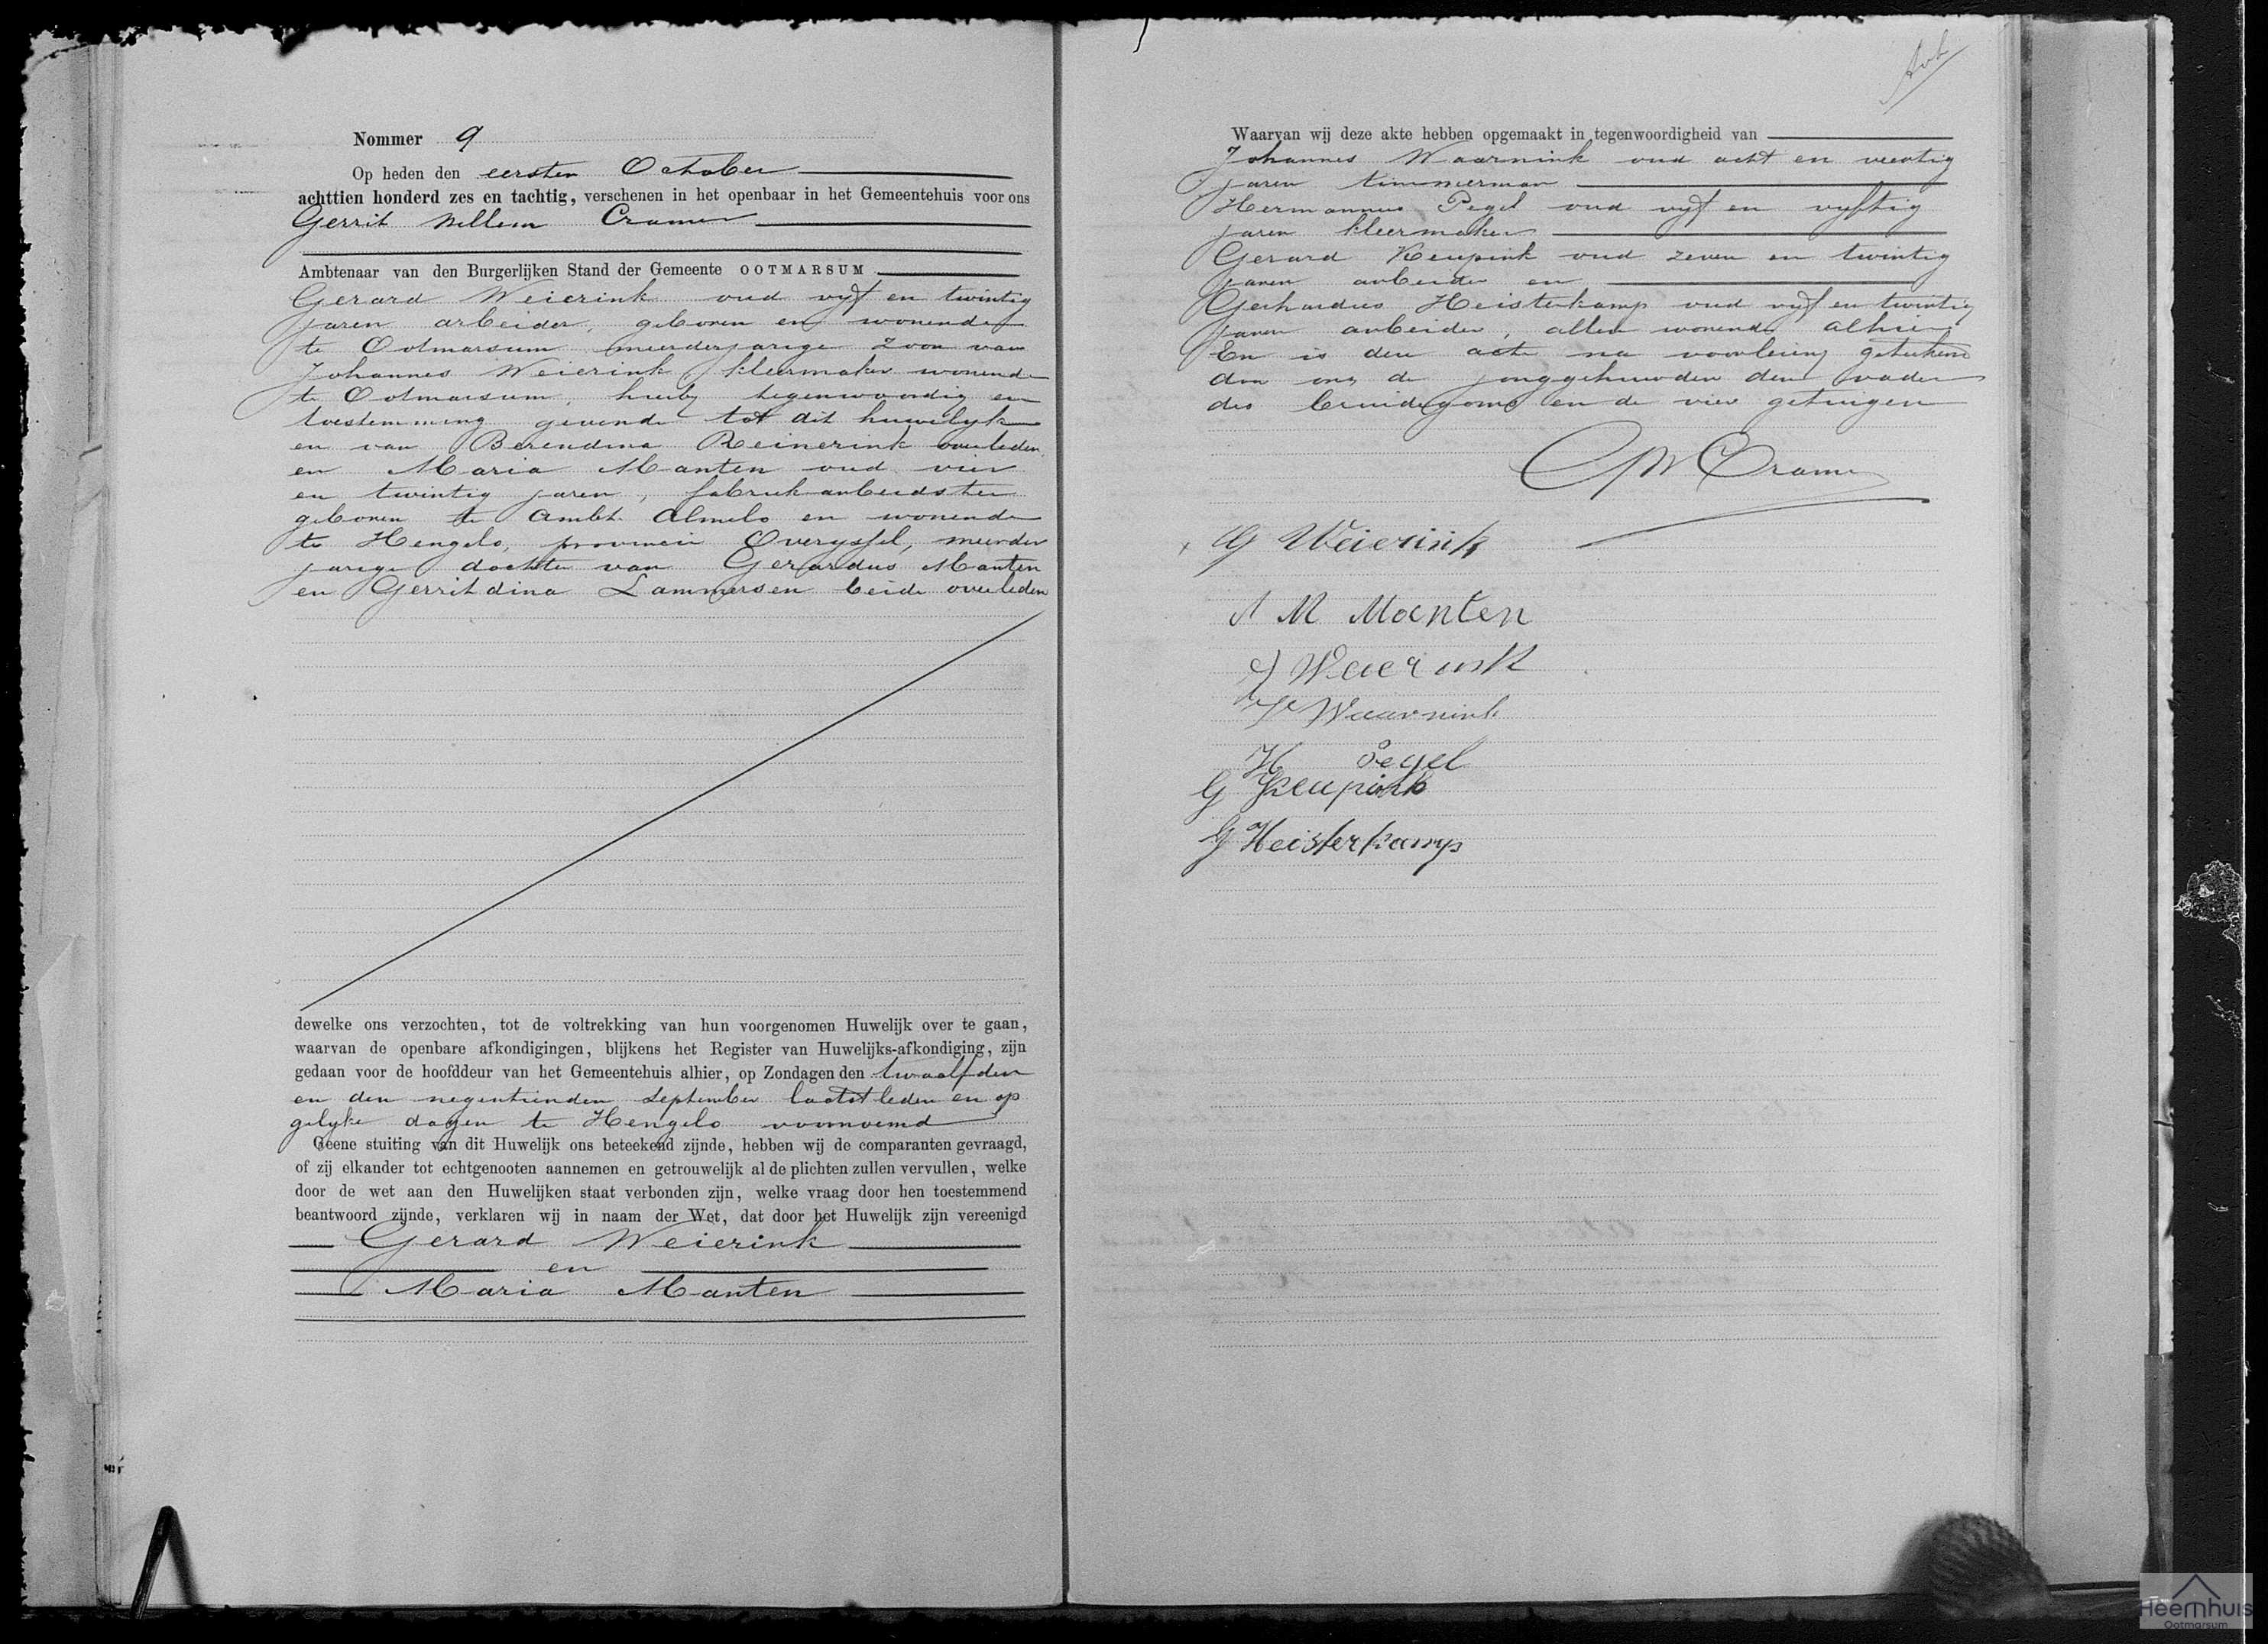 Nommer 9
Op heden den eersten October
achttien honderd zes en tachtig, verschenen in het openbaar in het Gemeentehuis voor ons
Gerrit Willem Cramer
Ambtenaar van den Burgerlijken Stand der Gemeente OOTMARSUM
Gerard Weierink oud vyf en twintig
jaren arbeider, geboren en wonende
te Ootmarsum meerderjarige zoon van
Johannes Weierink kleermaker wonende
te Ootmarsum, hierby tegenwoordig en
toestemming gevende tot dit huwelyk
en van Berendina Reinerink overleden
en Maria Manten oud vier
en twintig jaren, fabriekarbeidster
geboren te Ambt Almelo en wonende
te Hengelo, provincie Overyssel, meerder
jarige dochter van Gerardus Manten
en Gerritdina Lammersen beide overleden
dewelke ons verzochten, tot de voltrekking van hun voorgenomen Huwelijk over te gaan,
waarvan de openbare afkondigingen, blijkens het Register van Huwelijks-afkondiging, zijn
gedaan voor de hoofddeur van het Gemeentehuis alhier, op Zondagen den twaalfden
en den negentienden September laatstleden en op
gelyke dagen te Hengelo voornoemd
Geene stuiting van dit Huwelijk ons beteekend zijnde, hebben wij de comparanten gevraagd,
of zij elkander tot echtgenooten aannemen en getrouwelijk al de plichten zullen vervullen, welke
door de wet aan den Huwelijken staat verbonden zijn, welke vraag door hen toestemmend
beantwoord zijnde, verklaren wij in naam der Wet, dat door het Huwelijk zijn vereenigd
Gerard Weierink
en
Maria Manten
Waarvan wij deze akte hebben opgemaakt in tegenwoordigheid van
Johannes Waarnink oud acht en veertig
jaren timmerman
Hermannus Pegel oud vyf en vyftig
jaren kleermaker
Gerard Keupink oud zeven en twintig
jaren arbeider en
Gerhardus Heisterkamp oud vyf en twintig
jaren arbeider, allen wonende alhier
En is deze acte na voorlezing geteekend
door ons de jonggehuwden den vader
des bruidegoms en de vier getuigen
GW Cramer
G Weierink
M Manten
J Weierink
J Waarnink
H Pegel
G Keupink
G Heisterkamp
Heemhuis
Ootmarsum